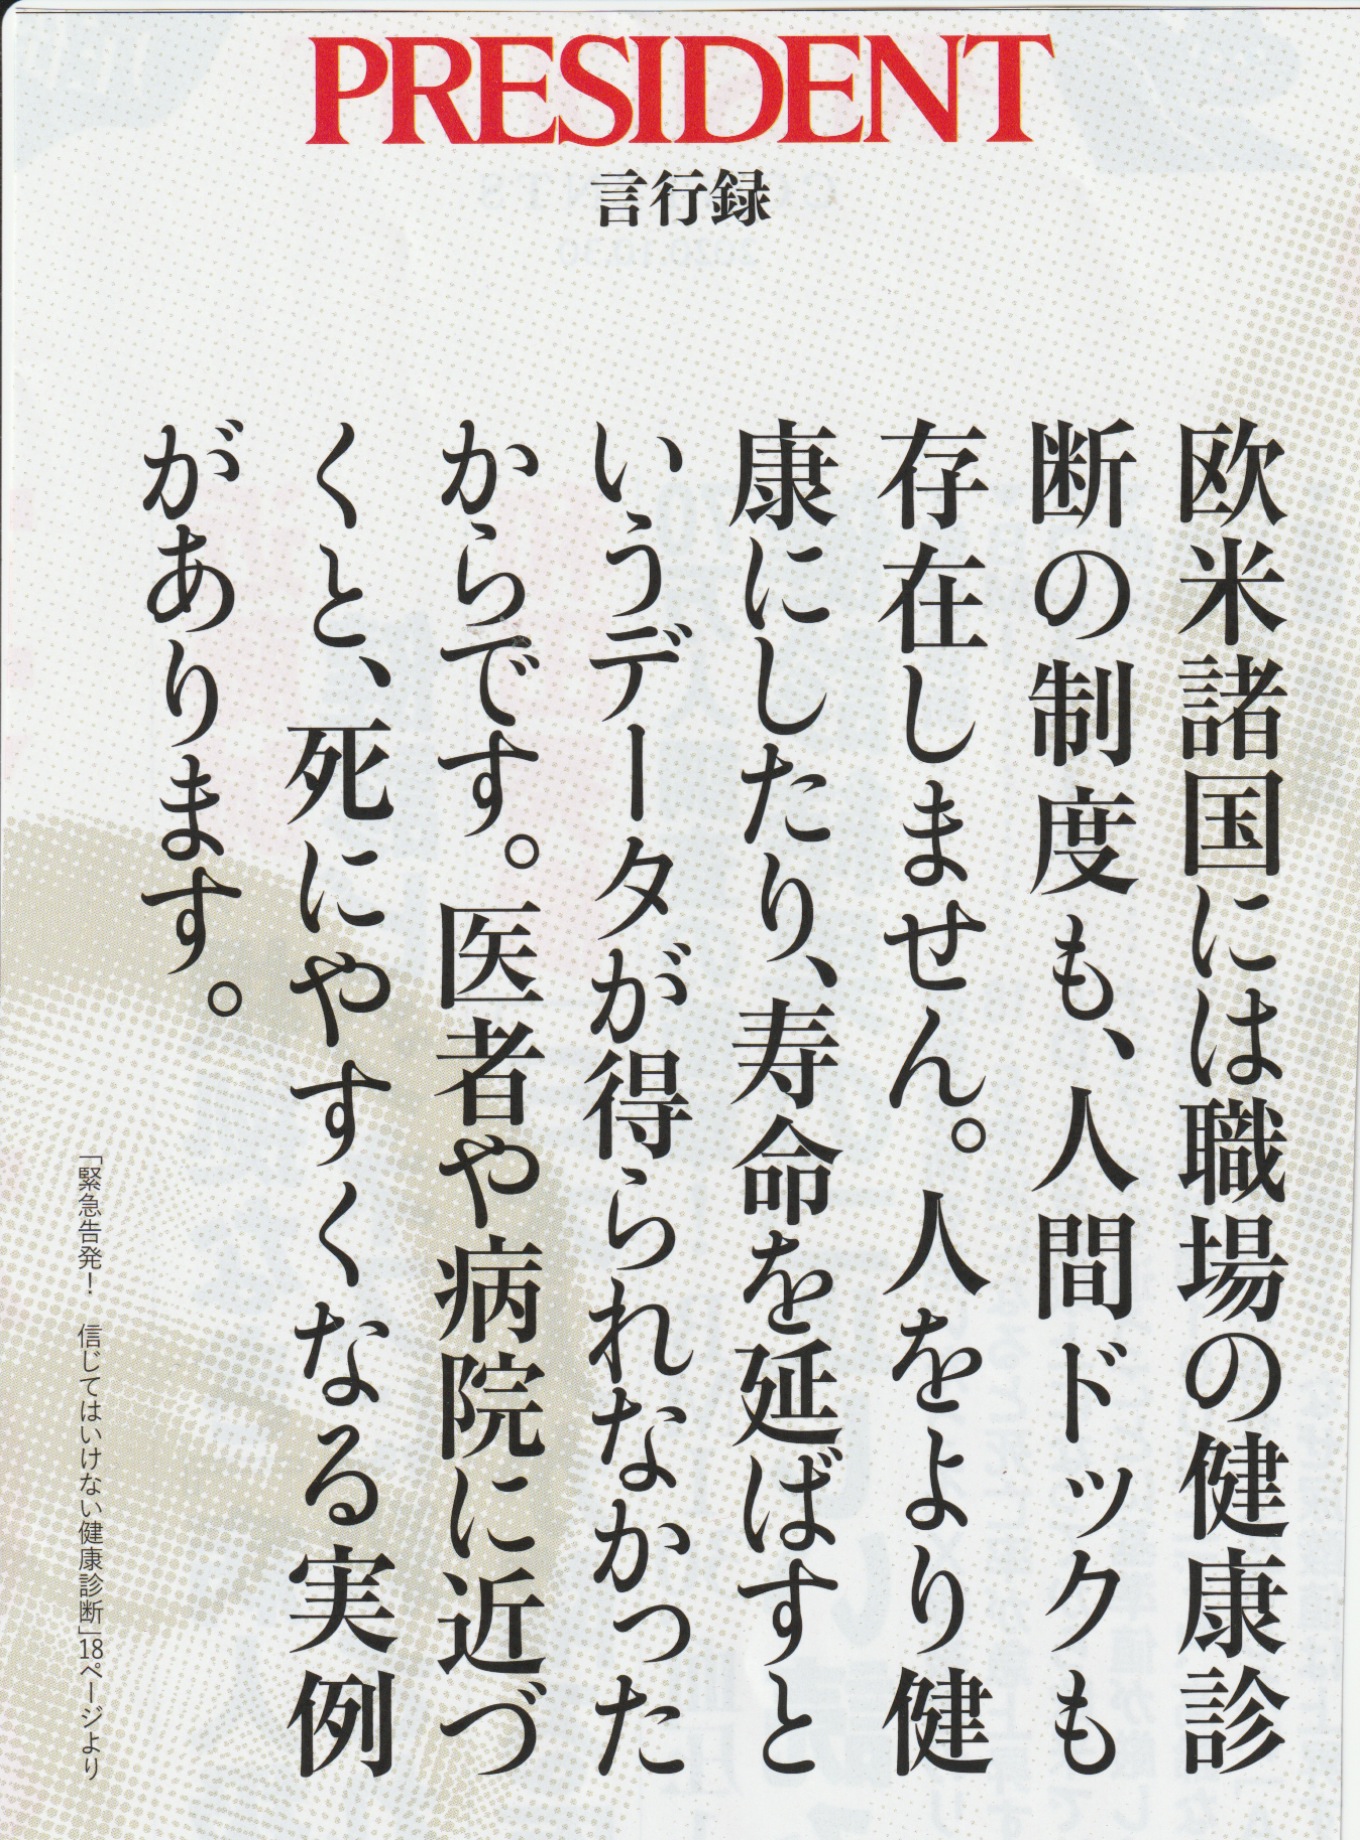 PRESIDENT
言行録
欧米諸国には職場の健康診
断の制度も、人間ドックも
存在しません。人をより健
康にしたり、寿命を延ばすと
いうデータが得られなかった
からです。医者や病院に近づ
くと、死にやすくなる実例
があります。
「緊急告発！　信じてはいけない健康診断」18ページより